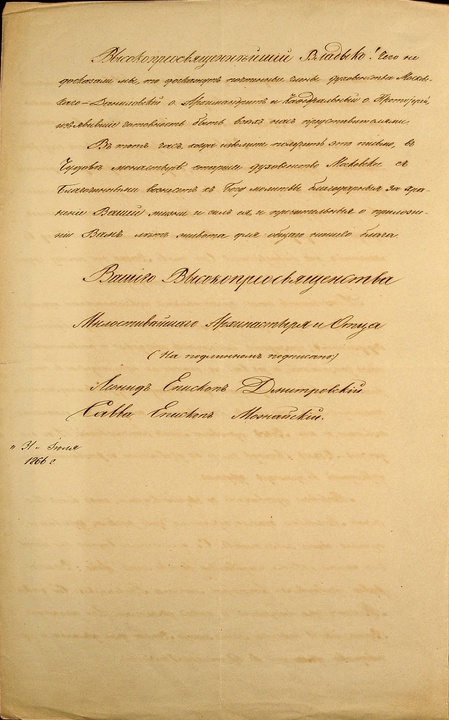 Высокопреосвященнѣйшій Владыко! Чего не
доскажем мы, то доскажутъ почтенные члены духовенства Москов-
скаго – Даниловскій о. Архимандритъ и Каѳедральный о. Протоіерей,
изъявившіе готовность быть всѣхъ насъ представителями.
Въ тотъ часъ, когда изволите получить это письмо, въ
Чудовѣ монастырѣ старшее духовенство Москвы съ
Благочинными вознесетъ къ Богу молитвы благодаренія за хра-
неніе Вашей жизни и силъ и о приложе-
ніи Вамъ лѣтъ живота для общаго нашего блага
Вашего Высокопреосвященства
Милостивѣйшаго Архипастыря и Отца
(На подлинномъ подписано)
Леонидъ Епископъ Дмитровскій
Савва Епископъ Можайскій.
31 Іюля
186 г